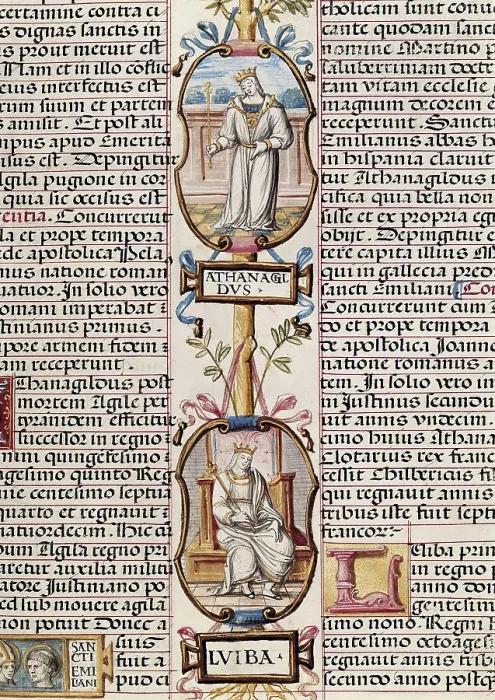 certamine contra ci
s dignas sanctis in
us prout meruit est
Nam et in illo cōflic
eius interfectus est
rum suum et partem
s amisit. Et post ali
mpus apud Emerita
isus est. Depingitur
Agila pugione in cor
quia sic occisus est
entia. Concurrerut
la et prope tempora
ede apostolica Pela
nus natione roman
uatuor. In solio vero
omani imperabat:
stinianus primus.
pore armem fidem:
am receperunt.
Athanagildus post
mortem Agile per
tyranidem efficitur
successor in regno
ni quingentesimo
agesimo quinto Reg
ne centesimo septua
quarto et regnauit:
natiordecim. Hic cū
oum Agila regno pri
aretur auxilia militū
atore Justiniano po
ed sub movere agila
non potuit Donec a
suis
fuit a
pud ci
SAN
CTI
EMI
LIANI
ATHANAGIL
DVS.
LVIBA.
tholicam sunt conu
cante quodam sanc
nomine Martino p
saluberrimam doctr
tam vitam ecclesie
magnum decorem e
receperunt. Sanctu
Emilianus abbas h
in hispania claruit
tur Athanagildus i
cifica quia bella non
sisse et ex propria egr
obijt. Depingitur e
tere capita illius M
qui in gallecia pred
sancti Emiliani Con
Concurrerunt cum
do et prope tempora
de apostolica Joanne
natione romanus a
tem. In solio vero in
in Justinus secundu
uit annis vndecim.
cimo huius Athana
Clotarius rex franc
cessit Chilbericus fi
qui regnauit annis
tribus iste fuit sept
francor
Leuiba prim
in regno p
anno don
gentesim
imo nono. Regni
centesimo octoages
regnauit annis trib
secundo anno postq